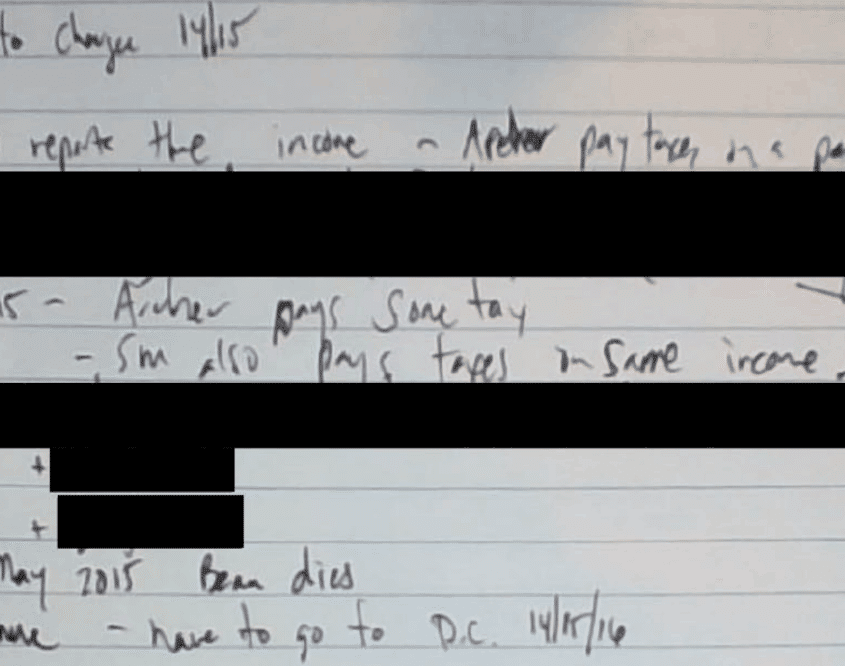 to charge 14/15
reports the income ~ Archer pay taxes on a
15 - Archer pays some tax
- Sm also pays taxes on same income.
+
+
May 2015 Beau dies
- have to go to D.C. 14/15/16